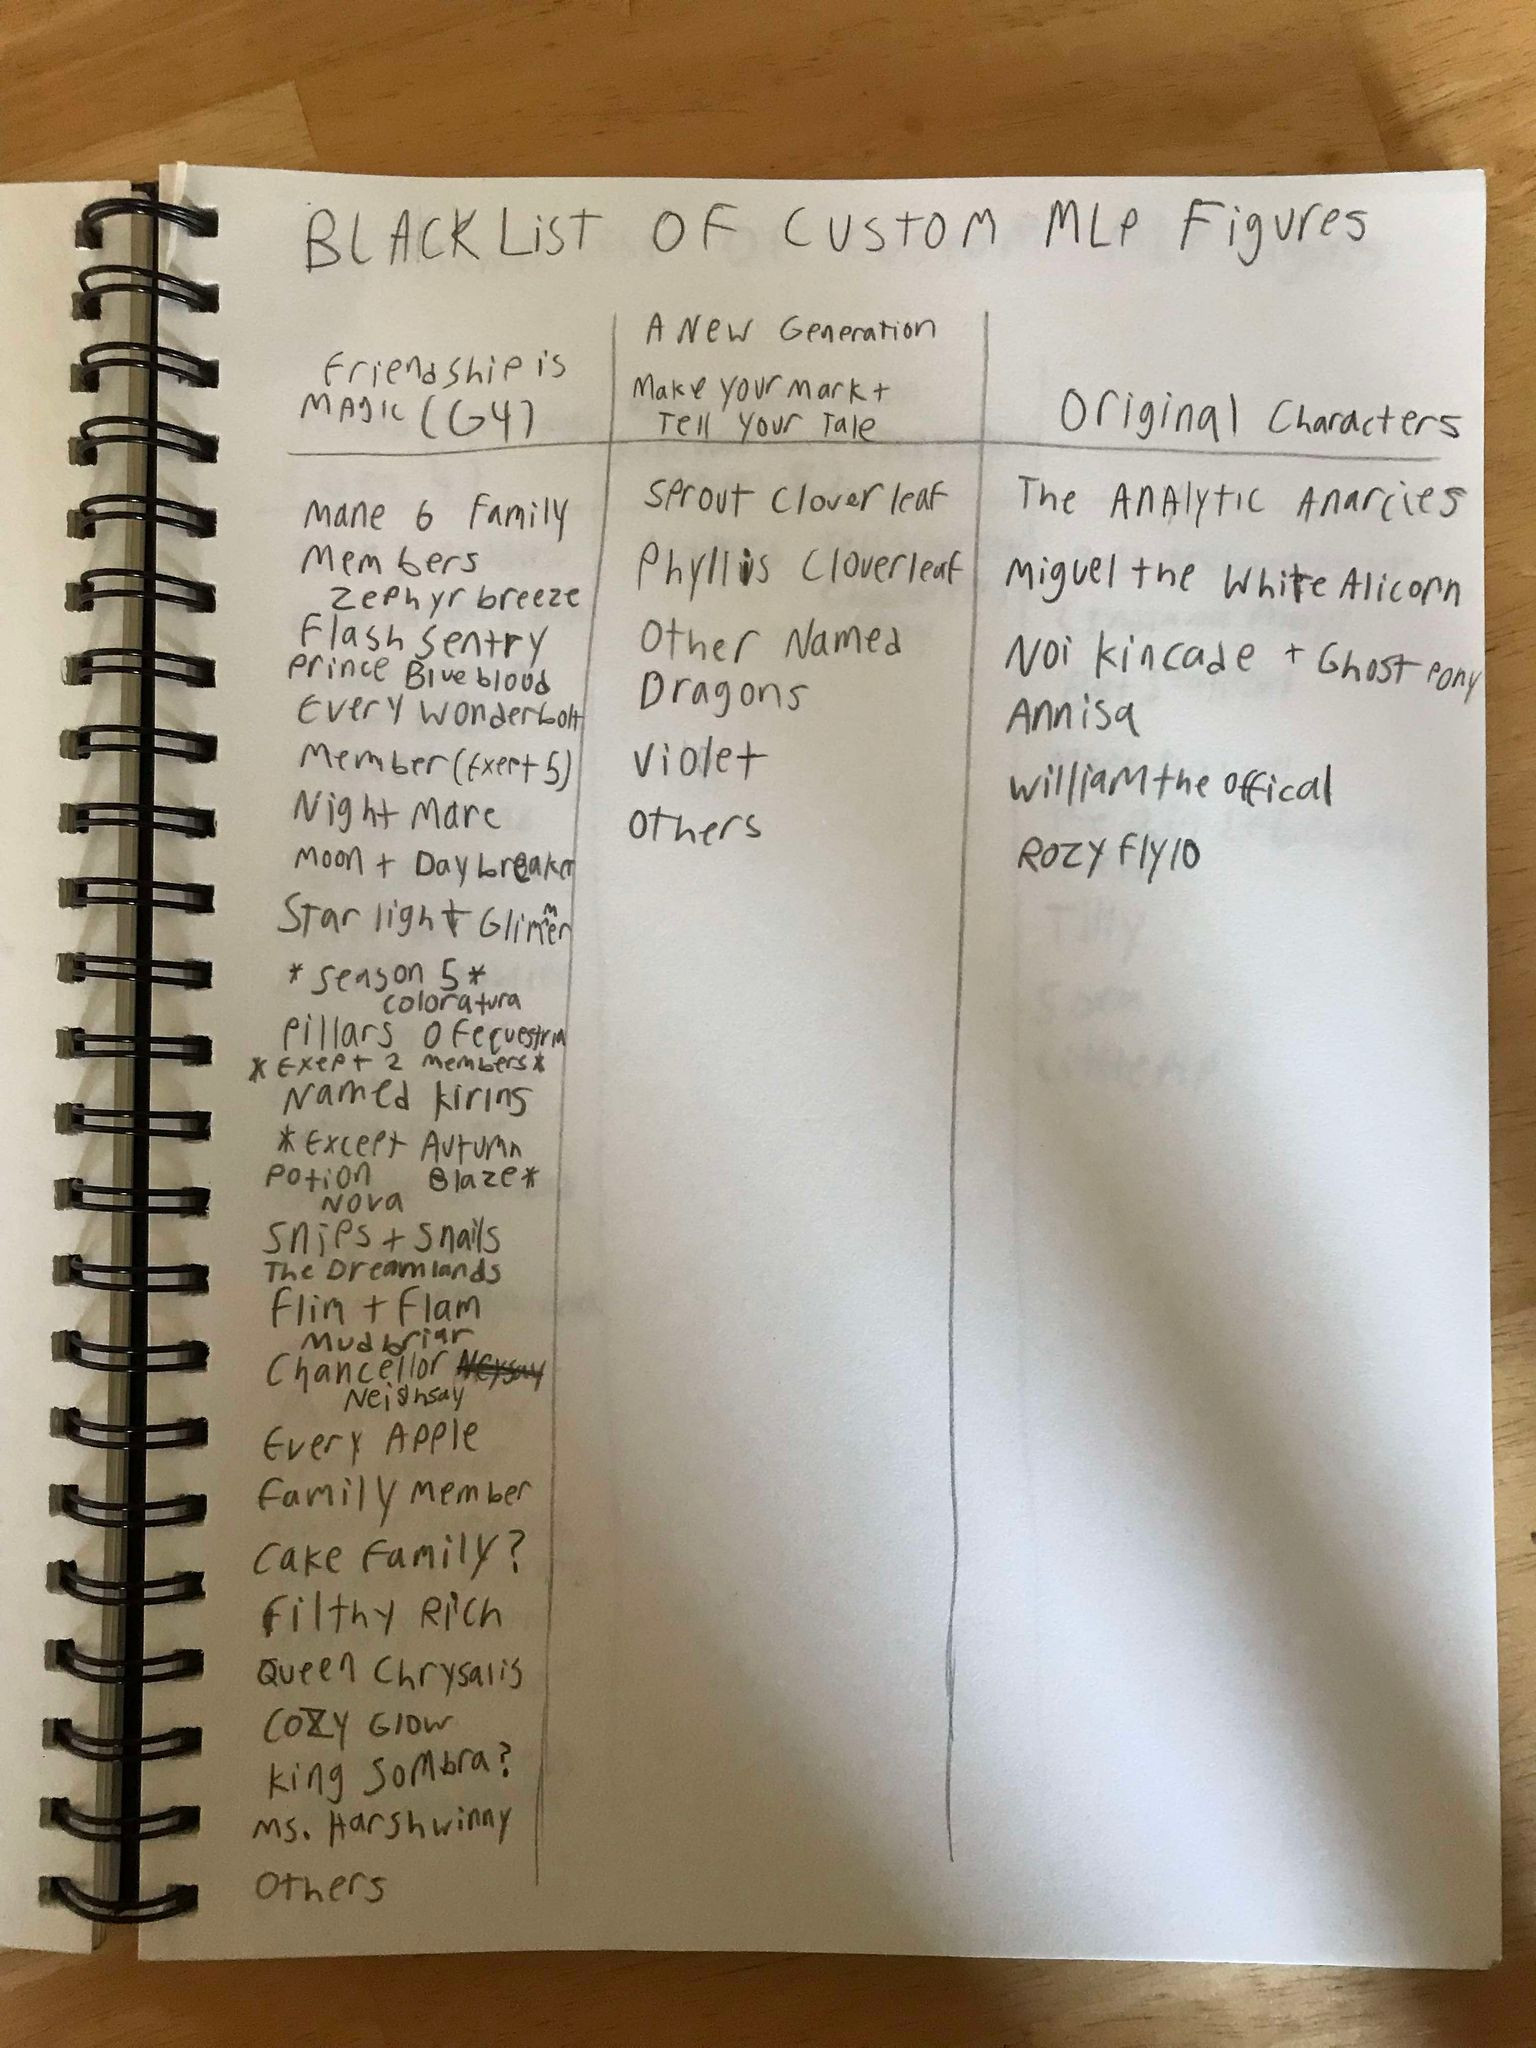 BLACKLIST OF CUSTOM MLP Figures
Friendship is
MAGIC (G4)
Mane 6 Family
Members
Zephyr breeze
Flash Sentry
Prince Blueblood
Every Wonderbolt
Member (Exept 5)
Night Mare
Moon + Daybreaker
Starlight Glimmer
*Season 5*
Coloratura
Pillars OF equestria
*Exept 2 members*
Named Kirins
*Except Autumn
Blaze*
Potion
Nova
Snips + Snails
The Dreamlands
Flim + Flam
Mudbriar
Chancellor Neysay
Neighsay
Every Apple
Family Member
Cake Family?
Filthy Rich
Queen Chrysalis
COZY GLOW
King Sombra?
Ms. Harshwinny
Others
A New Generation
Make your mark +
Tell Your Tale
Sprout Cloverleaf
Phyllis Cloverleaf
Other Named
Dragons
Violet
Others
Original Characters
The ANAlytic Anarcies
Miguel the White Alicorn
Noi Kincade + Ghost Pony
Annisa
William the Offical
Rozy Flylo